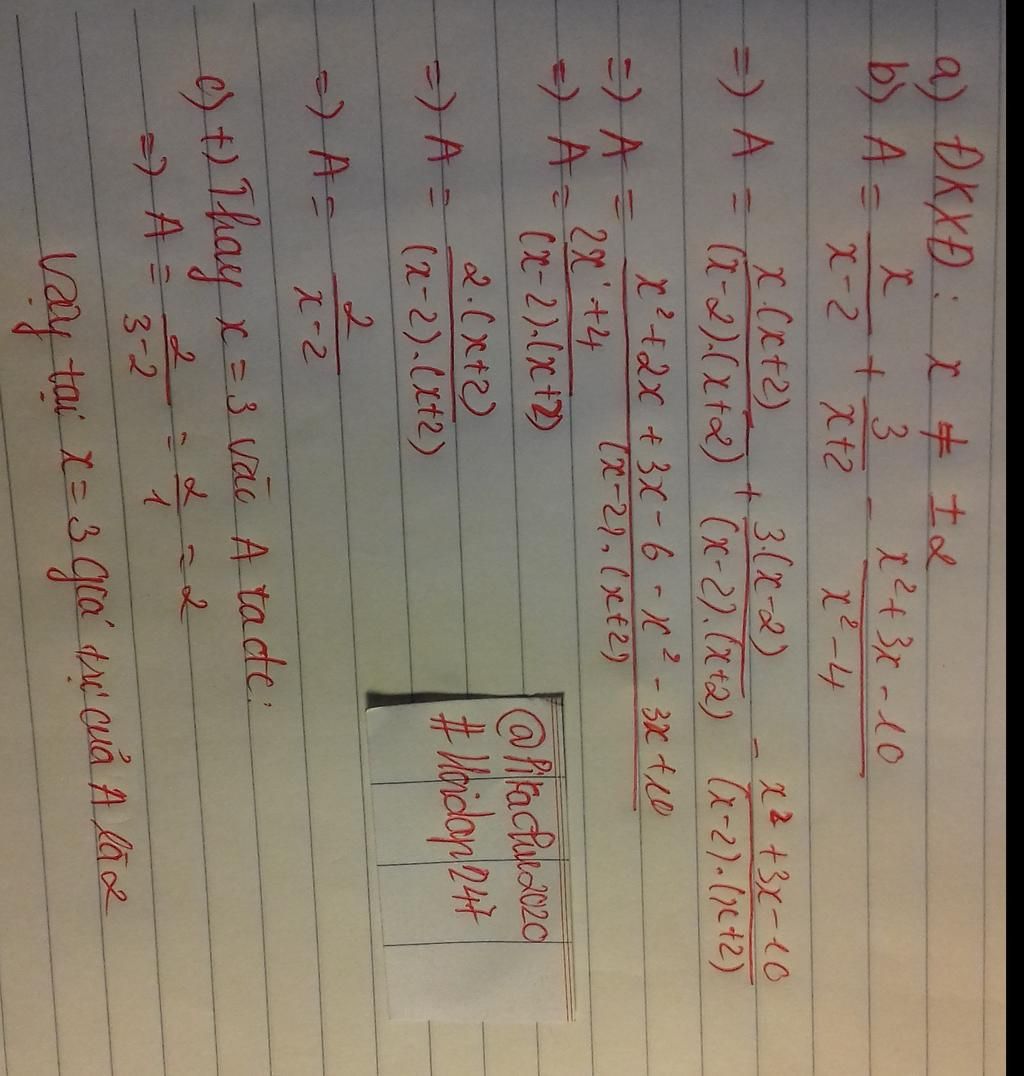 a) ĐKXĐ: x ≠ ±2
b) A = x/(x-2) + 3/(x+2) - (x² + 3x - 10)/(x² - 4)
=) A = x.(x+2)/((x-2).(x+2)) + 3.(x-2)/((x-2).(x+2)) - (x² + 3x - 10)/((x-2).(x+2))
=) A = (x² + 2x + 3x - 6 - x² - 3x + 10)/((x-2).(x+2))
=) A = (2x + 4)/((x-2).(x+2))
=) A = 2.(x+2)/((x-2).(x+2))
=) A = 2/(x-2)
c) t) Thay x = 3 vào A ta dc:
=) A = 2/(3-2) = 2/1 = 2
Vậy tại x = 3 giá trị của A là 2
@Pikachue2020
#Hoidap247